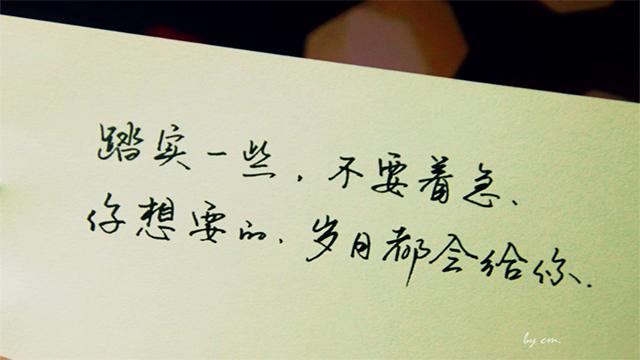 踏实一些,不要着急、
你想要的、岁月都会给你.
by cm.